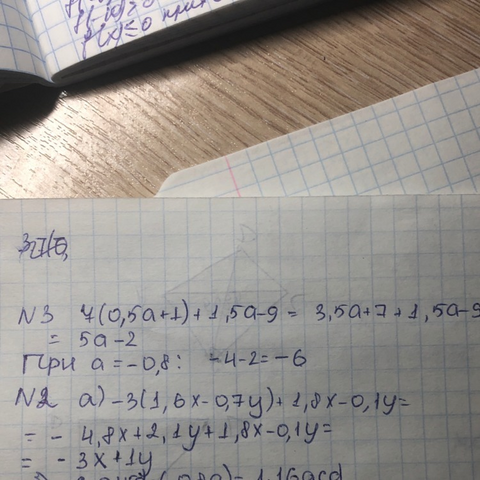 f(x) ≤ 0 при
N3 7(0,5a+1)+1,5a-9 = 3,5a+7+1,5a-9
= 5a-2
При a=-0,8: -4-2=-6
N2 a) -3(1,6x-0,7y)+1,8x-0,1y=
= - 4,8x+2,1y+1,8x-0,1y=
= - 3x+1y
= 1,16acd